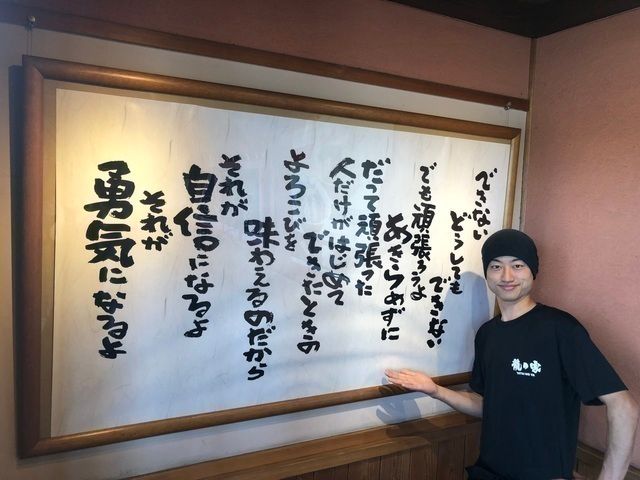 できない
どうしても
できない
でも頑張ろうよ
あきらめずに
だって頑張った
人だけがはじめて
できたときの
よろこびを
味わえるのだから
それが
自信になるよ
それが
勇気になるよ
龍の家